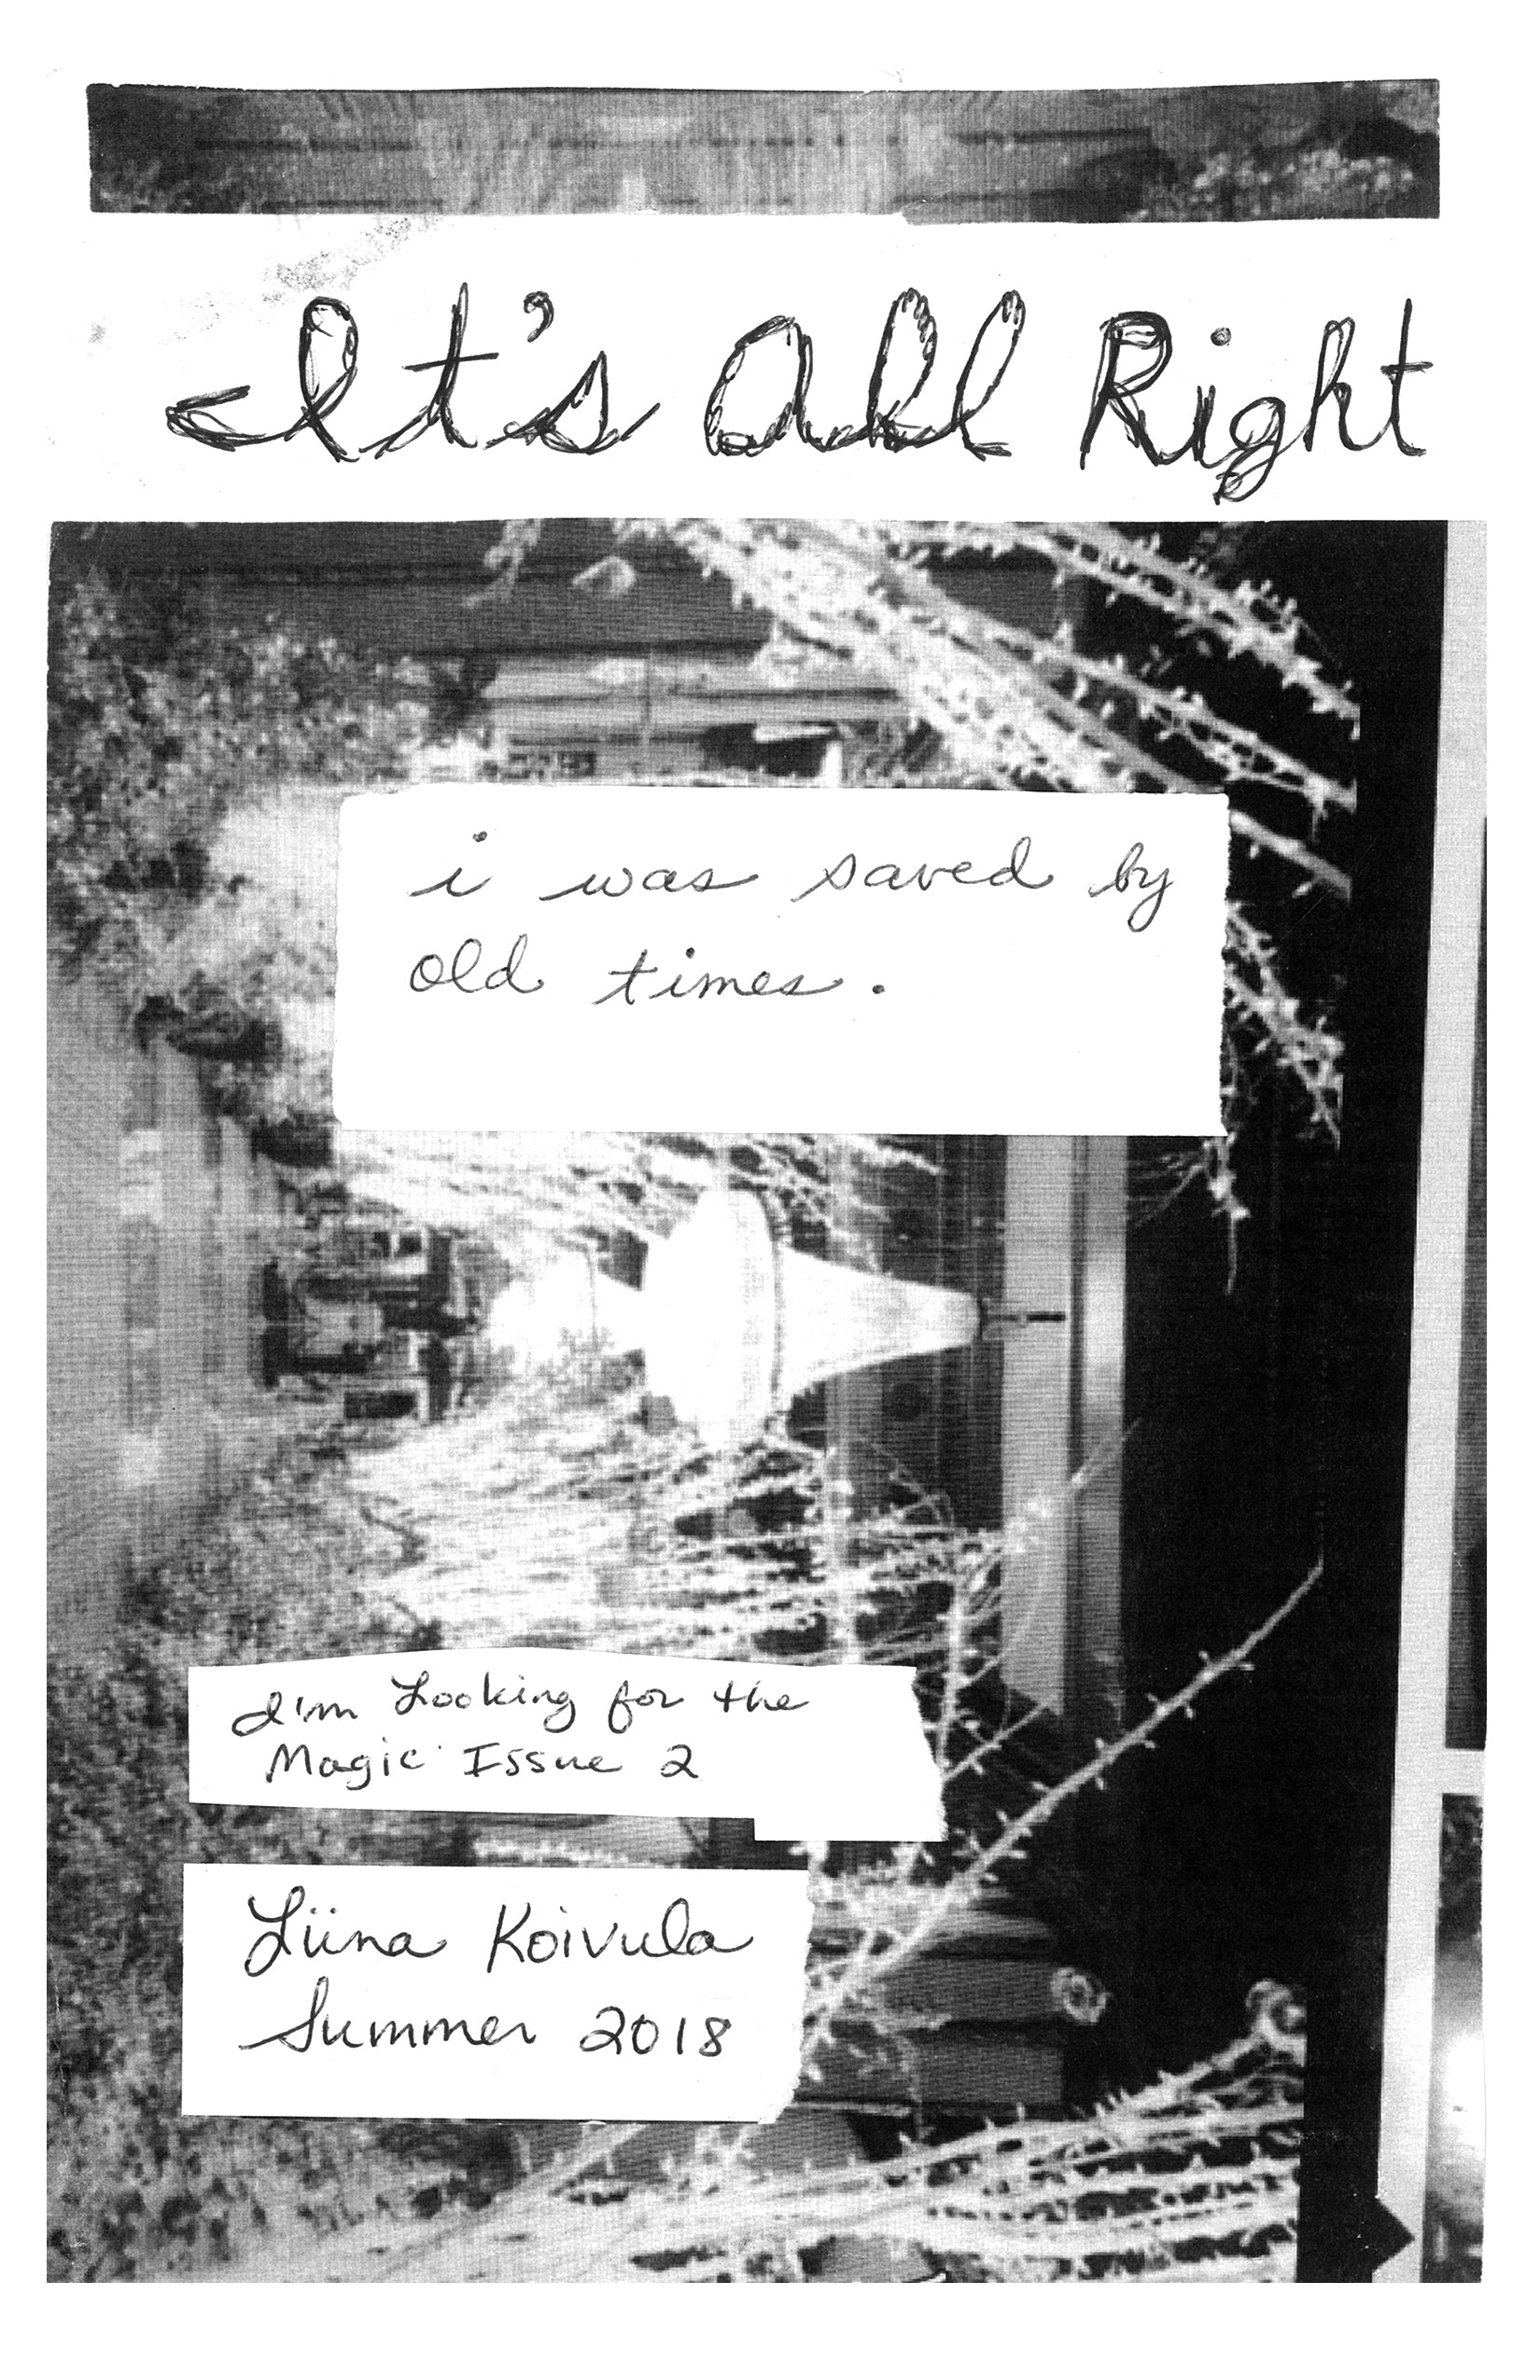 It's All Right
i was saved by
old times.
I'm Looking for the
Magic Issue 2
Liina Koivula
Summer 2018